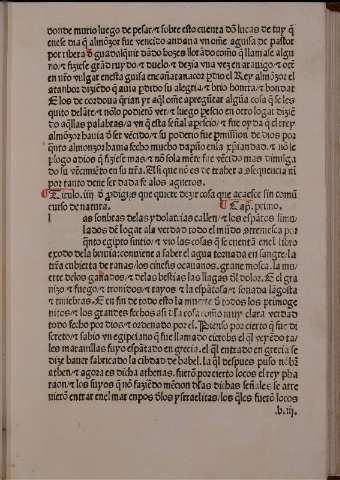 donde murio luego de pesar ⁊ sobre esto cuenta dõ lucas de tuy q̃
en ese dia q̃ almõzor fue vencido andaua vn ome a guisa de pastor
por ribera đ guadalquir dãdo bozes llorãdo como q̃ llamase algu
no ⁊ fiziese grãd ruydo ⁊ duelo ⁊ dezia vna vez en arauigo ⁊ otr
en nr̃o vulgar en esta guisa en cañatanaçor p̃dio el Rey almõzor el
atanbor diziẽdo q̃ auia p̃dido su alegria ⁊ brio bonita ⁊ bondat
E los de cordoua q̃rian yr aq̃l ome a preguntar alguna cosa q̃ se les
quito delãte ⁊ nõlo podierõ ver ⁊ luego p̃escio en otro logar diziẽ
do aq̃llas palabras ⁊ vn q̃ esta señal apescio ⁊ fue oyda q̃ el rey
almõzor hauia đ ser vẽcido ⁊ su poderio fue p̃mission de dios por
quãto almonzor hauia fecho mucho dapño en la xp̃iandad. ⁊ nõ le
plogo a dios q̃ fiziese mas ⁊ nõ sola mẽte fue vẽcido mas diminuyda
do su vẽcimiẽto en su trã. Asi que nõ es de traher a sequencia ni
por tanto deue ser dada fe a los agueros.
¶ Titulo. iiij đ p̃digios que quiere dezir cosa que acaesce sin comũ
curso de natura. ¶ Cap̃. primo.
l as sonbras de las ydolatrias callen ⁊ los espãtos simu
lados dẽ logar a la verdad todo el mũdo stremesca por
quãto egipto sintio ⁊ vio las cosas q̃ se cuentã en el libro
exodo de la breuia: conuiene a saber el agua tornada en sangre. la
trã cubierta de ranas. los cinefis oçauanos. grane mosca. la mu
erte delos ganados ⁊ delas bestias las llagas đl dolor. E el gra
nizo ⁊ fuego ⁊ tronidos ⁊ rayos ⁊ la espãtosa ⁊ sonada lãgosta
⁊ tiniebras. E en fin de todo esto la muerte đ todos los primoge
nitos ⁊ los grandes fechos asi đsta cosa como muy clara verdad
todo fecho por dios ⁊ ordenado por el. Pienso por cierto q̃ fue di
screto ⁊ sabio vn egipciano q̃ fue llamado cicrobs el q̃l veyẽdo ta
les marauillas fuyo espãtado en grecia. el q̃l entrado en grecia se
dize hauer fabricado la cibdad de babel. la q̃l despues puso nõbr̃
athen ⁊ agora es dicha athenas. fuerõ por cierto locos el rey pha
raon ⁊ los suyos q̃ nõ faziẽdo mẽcion đlas dichas señales se atre
uierõ entrar en el mar en pos đlos ysraelitas. los q̃les fuerõ locos
.b. iij.